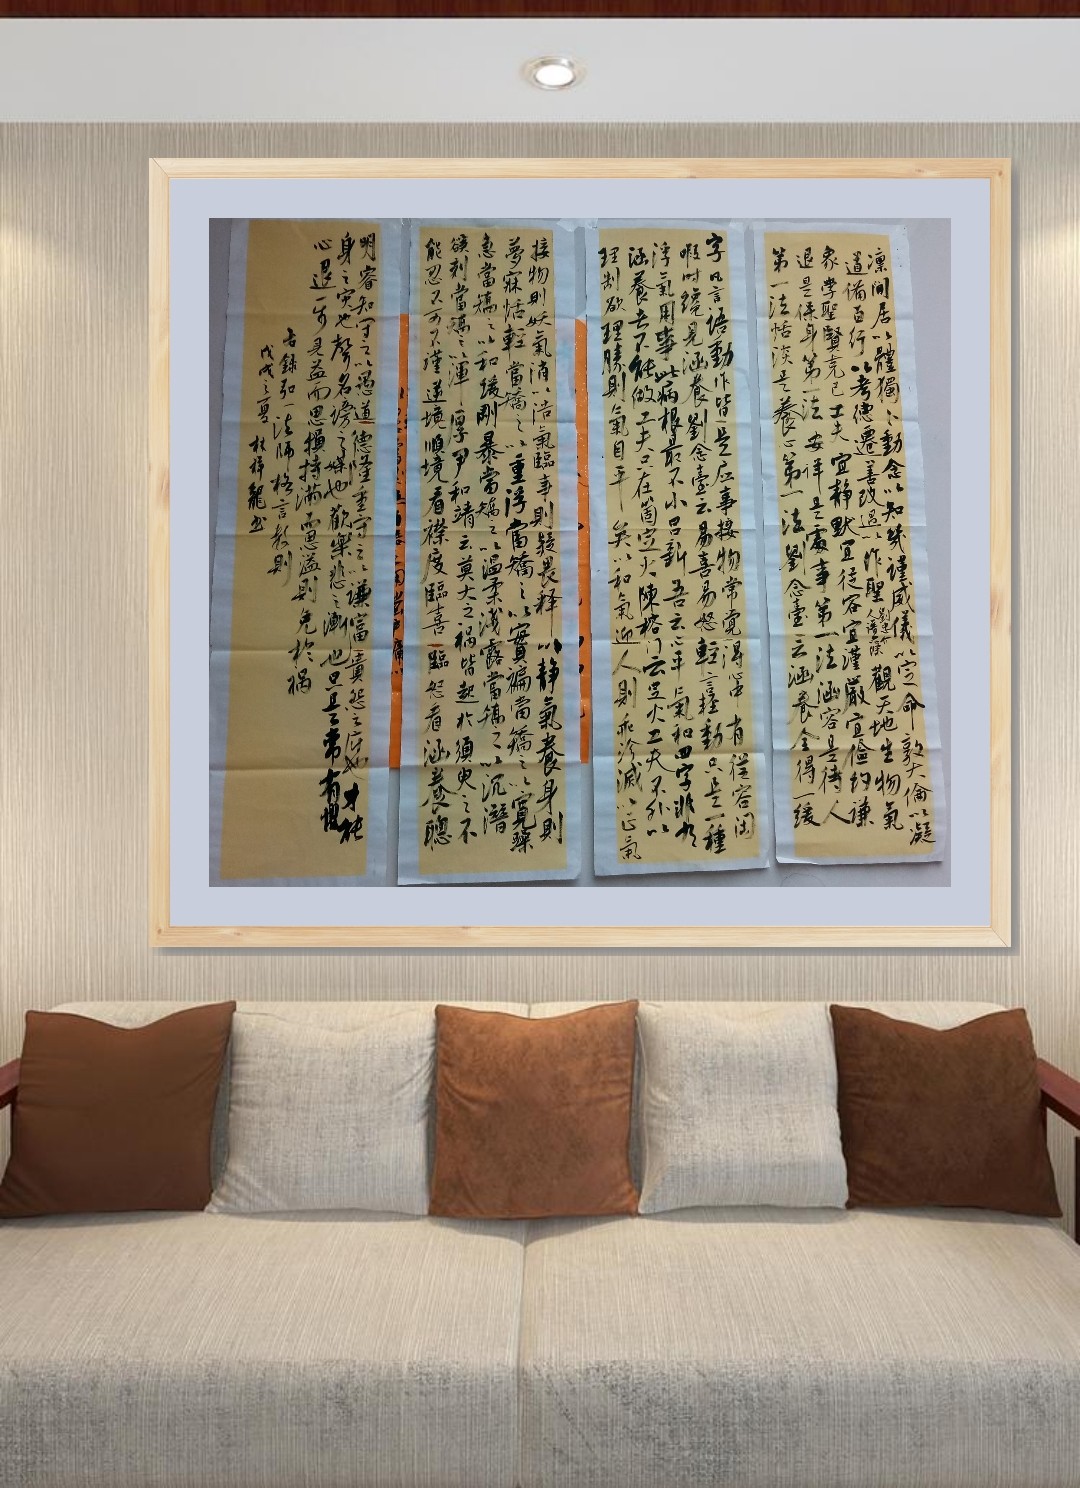 凛闲居以體獨卜動念以知幾謹威儀以定命敦大倫以凝
道備百行以考德遷善改過以作聖劉忠介人譜六條觀天地生物氣
象學聖賢克己工夫宜静默宜從容宜謹嚴宜儉約謙
退是保身第一法安祥是處事第一法涵容是待人
第一法恬淡是養心第一法劉念臺云涵養全得一緩
字凡言語動作皆是应事接物常覺得心中有從容闲
暇时纔見涵養劉念臺云易喜易怒輕言輕動只是一種
浮氣用事此病根最不小吕新吾云心平氣和四字非有
涵養者不能做工夫只在箇定火陳榕门云定火工夫不外以
理制欲理勝則氣自平矣以和氣迎人則乖沴滅以正氣
接物則妖氣消以浩氣臨事則疑畏释以静氣養身則
夢寐恬輕當矯之以重浮當矯之以實褊當矯之以寬躁
急當矯之以和缓刚暴當矯之以温柔浅露當矯之以沉潛
谿刻當矯之以渾厚尹和靖云莫大之祸皆起於須臾之不
能忍不可不謹逆境順境看襟度臨喜臨怒看涵養聰
明睿知守之以愚道德隆重守之以谦富貴怨之府也才能
身之灾也聲名謗之媒也歡樂悲之漸也只是常有懼
心退一步見益而思損持满而思溢則免於祸
右録弘一法师格言教則
戊戌之夏杜祥龍书